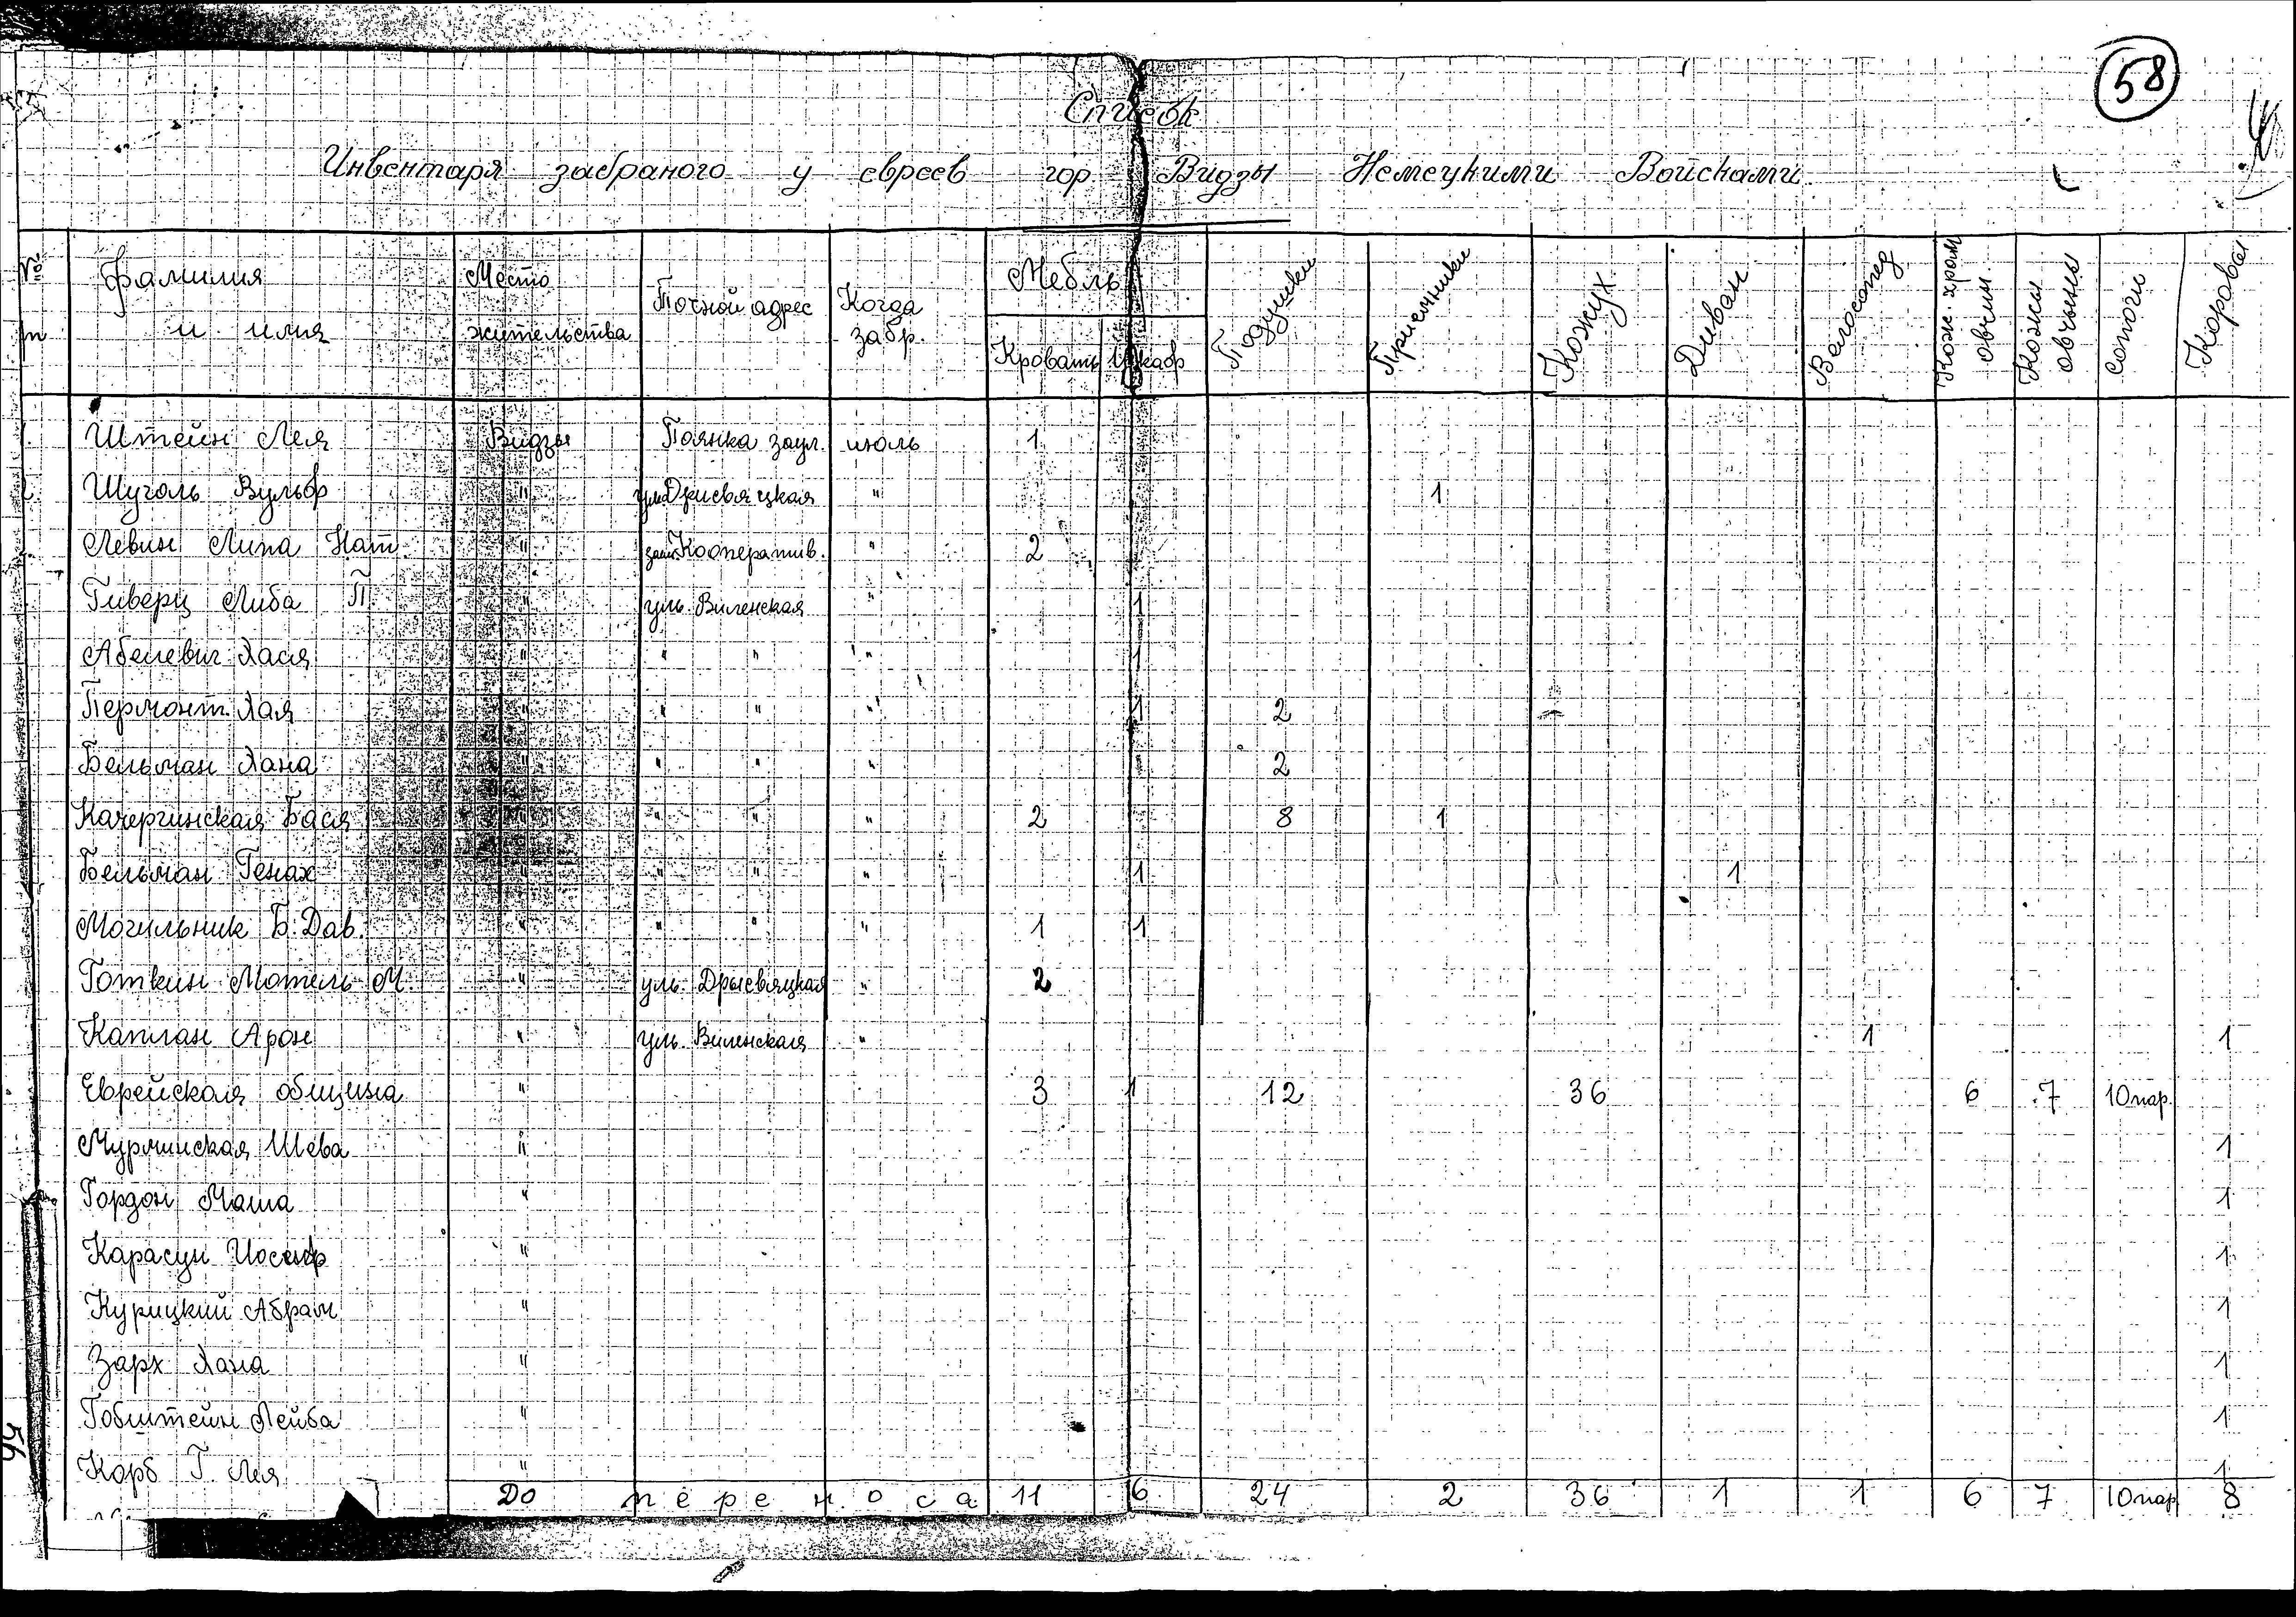 58
Список
Инвентаря забраного у евреев гор Видзы Немецкими Войсками
№ Фамилия и имия Место жительства Точной адрес Когда забр. Мебль Кровать Шкаф Подушки Приемники Кожух Диван Велосопед Кож. хром овчин. Кожи овчыны сопоги Корова
Штейн Лея Видзы Полнка заул. июль 1
Шуголь Вульф " Дрисвяцкая " 1
Левин Липа Нат. " Кооператив. " 2
Гиверц Либа П. " уль Виленская " 1
Абелевич Хася " " " " 1
Пермонт Хая " " " " 1 2
Бельман Хана " " " " 2
Качергинская Бася " " " " 2 8 1
Бельман Генах " " " " 1 1
Могильник Б. Дав. " " " " 1 1
Готкин Мотель М. " уль. Дрысвяцкая " 2
Каплан Арон " уль. Виленская " 1 1
Еврейская община " 3 1 12 36 6 7 10 пар.
Мурминская Шева " 1
Гордон Маша " 1
Карасин Иосиф " 1
Курицкий Абрам " 1
Зарх Хана " 1
Гобштейн Лейба " 1
Корб Г. Лея " 1
До переноса 11 6 24 2 36 1 1 6 7 10 пар 8
56